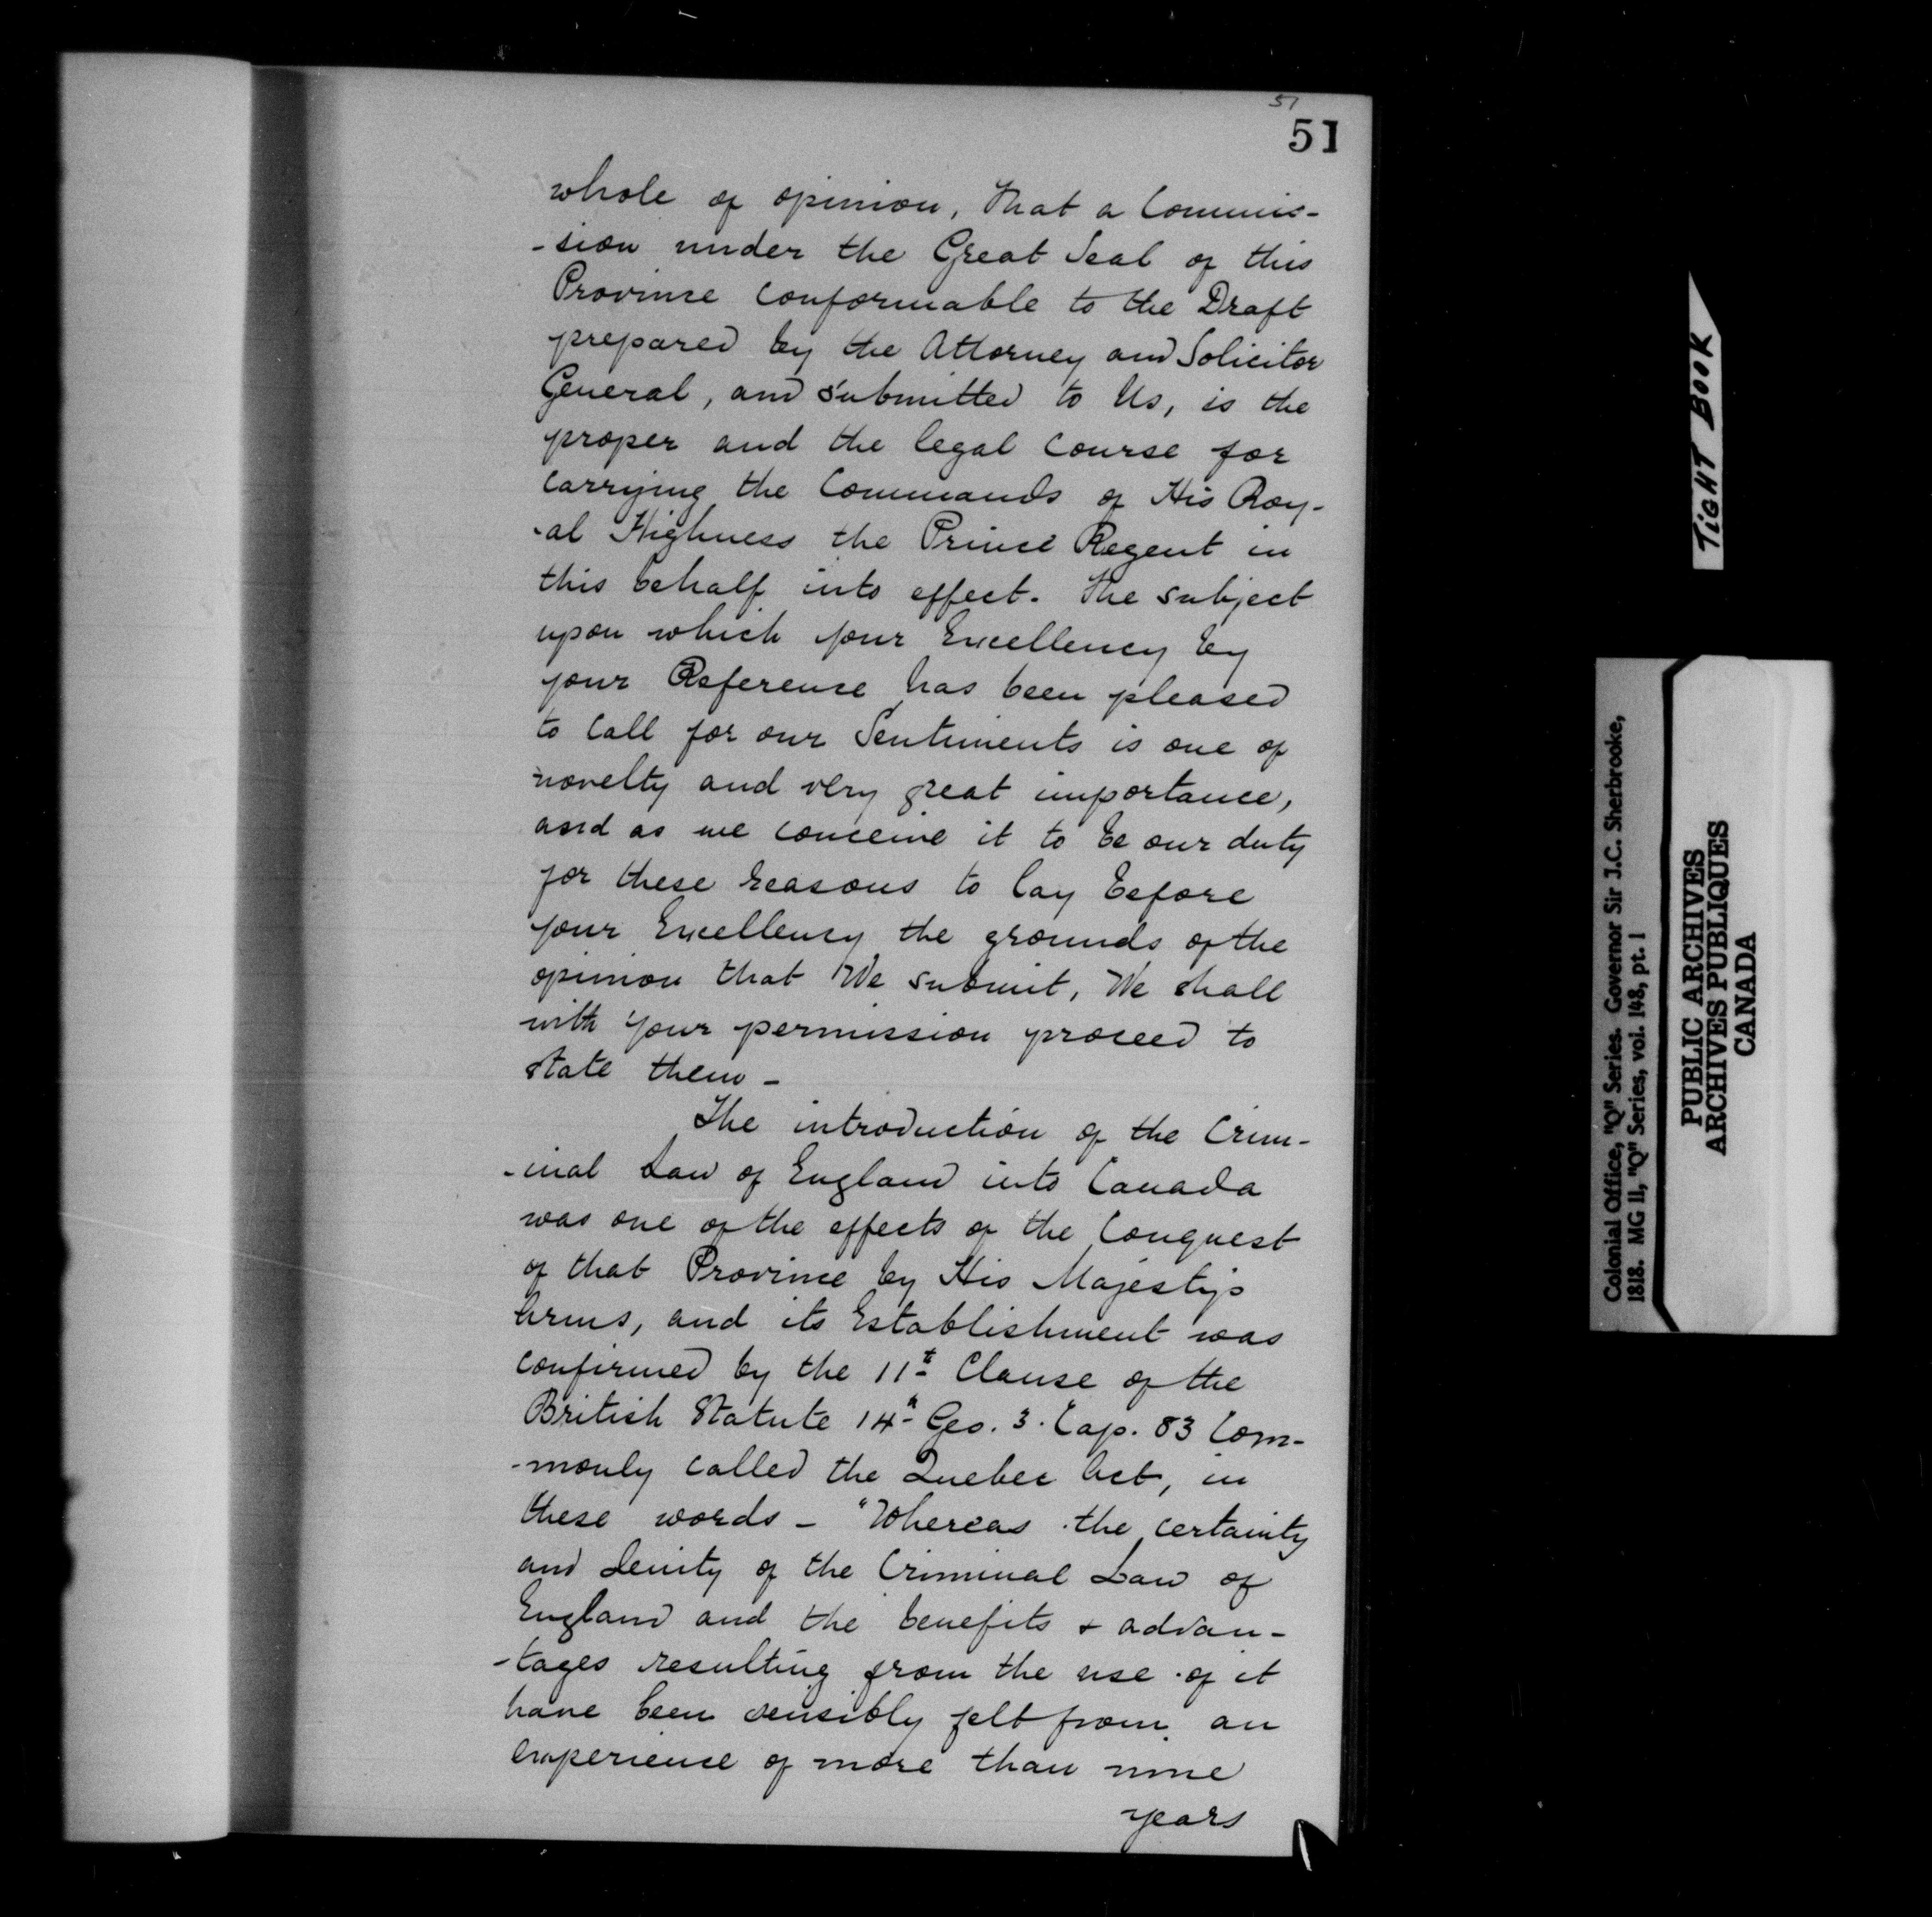 51
51
whole of opinion, That a Commis-
-sion under the Great Seal of this
Province conformable to the Draft
prepared by the Attorney and Solicitor
General, and submitted to Us, is the
proper and the legal Course for
Carrying the Commands of His Roy-
-al Highness the Prince Regent in
this behalf into effect. The subject
upon which your Excellency by
your Reference has been pleased
to Call for our Sentiments is one of
novelty and very great importance,
and as we conceive it to be our duty
for these reasons to lay before
your Excellency the grounds of the
opinion that We submit, We shall
with your permission proceed to
state them -
The introduction of the Crim-
-inal Law of England into Canada
was one of the effects of the Conquest
of that Province by His Majesty's
Arms, and its Establishment was
confirmed by the 11th Clause of the
British Statute 14th Geo. 3. Cap. 83 Com-
-monly called the Quebec Act, in
these words - "Whereas the certainty
and Lenity of the Criminal Law of
England and the benefits & advan-
-tages resulting from the use of it
have been sensibly felt from an
Experience of more than nine
years
TIGHT BOOK
Colonial Office, "Q" Series. Governor Sir J.C. Sherbrooke,
1818. MG 11, "Q" Series, vol. 148, pt. 1
PUBLIC ARCHIVES
ARCHIVES PUBLIQUES
CANADA